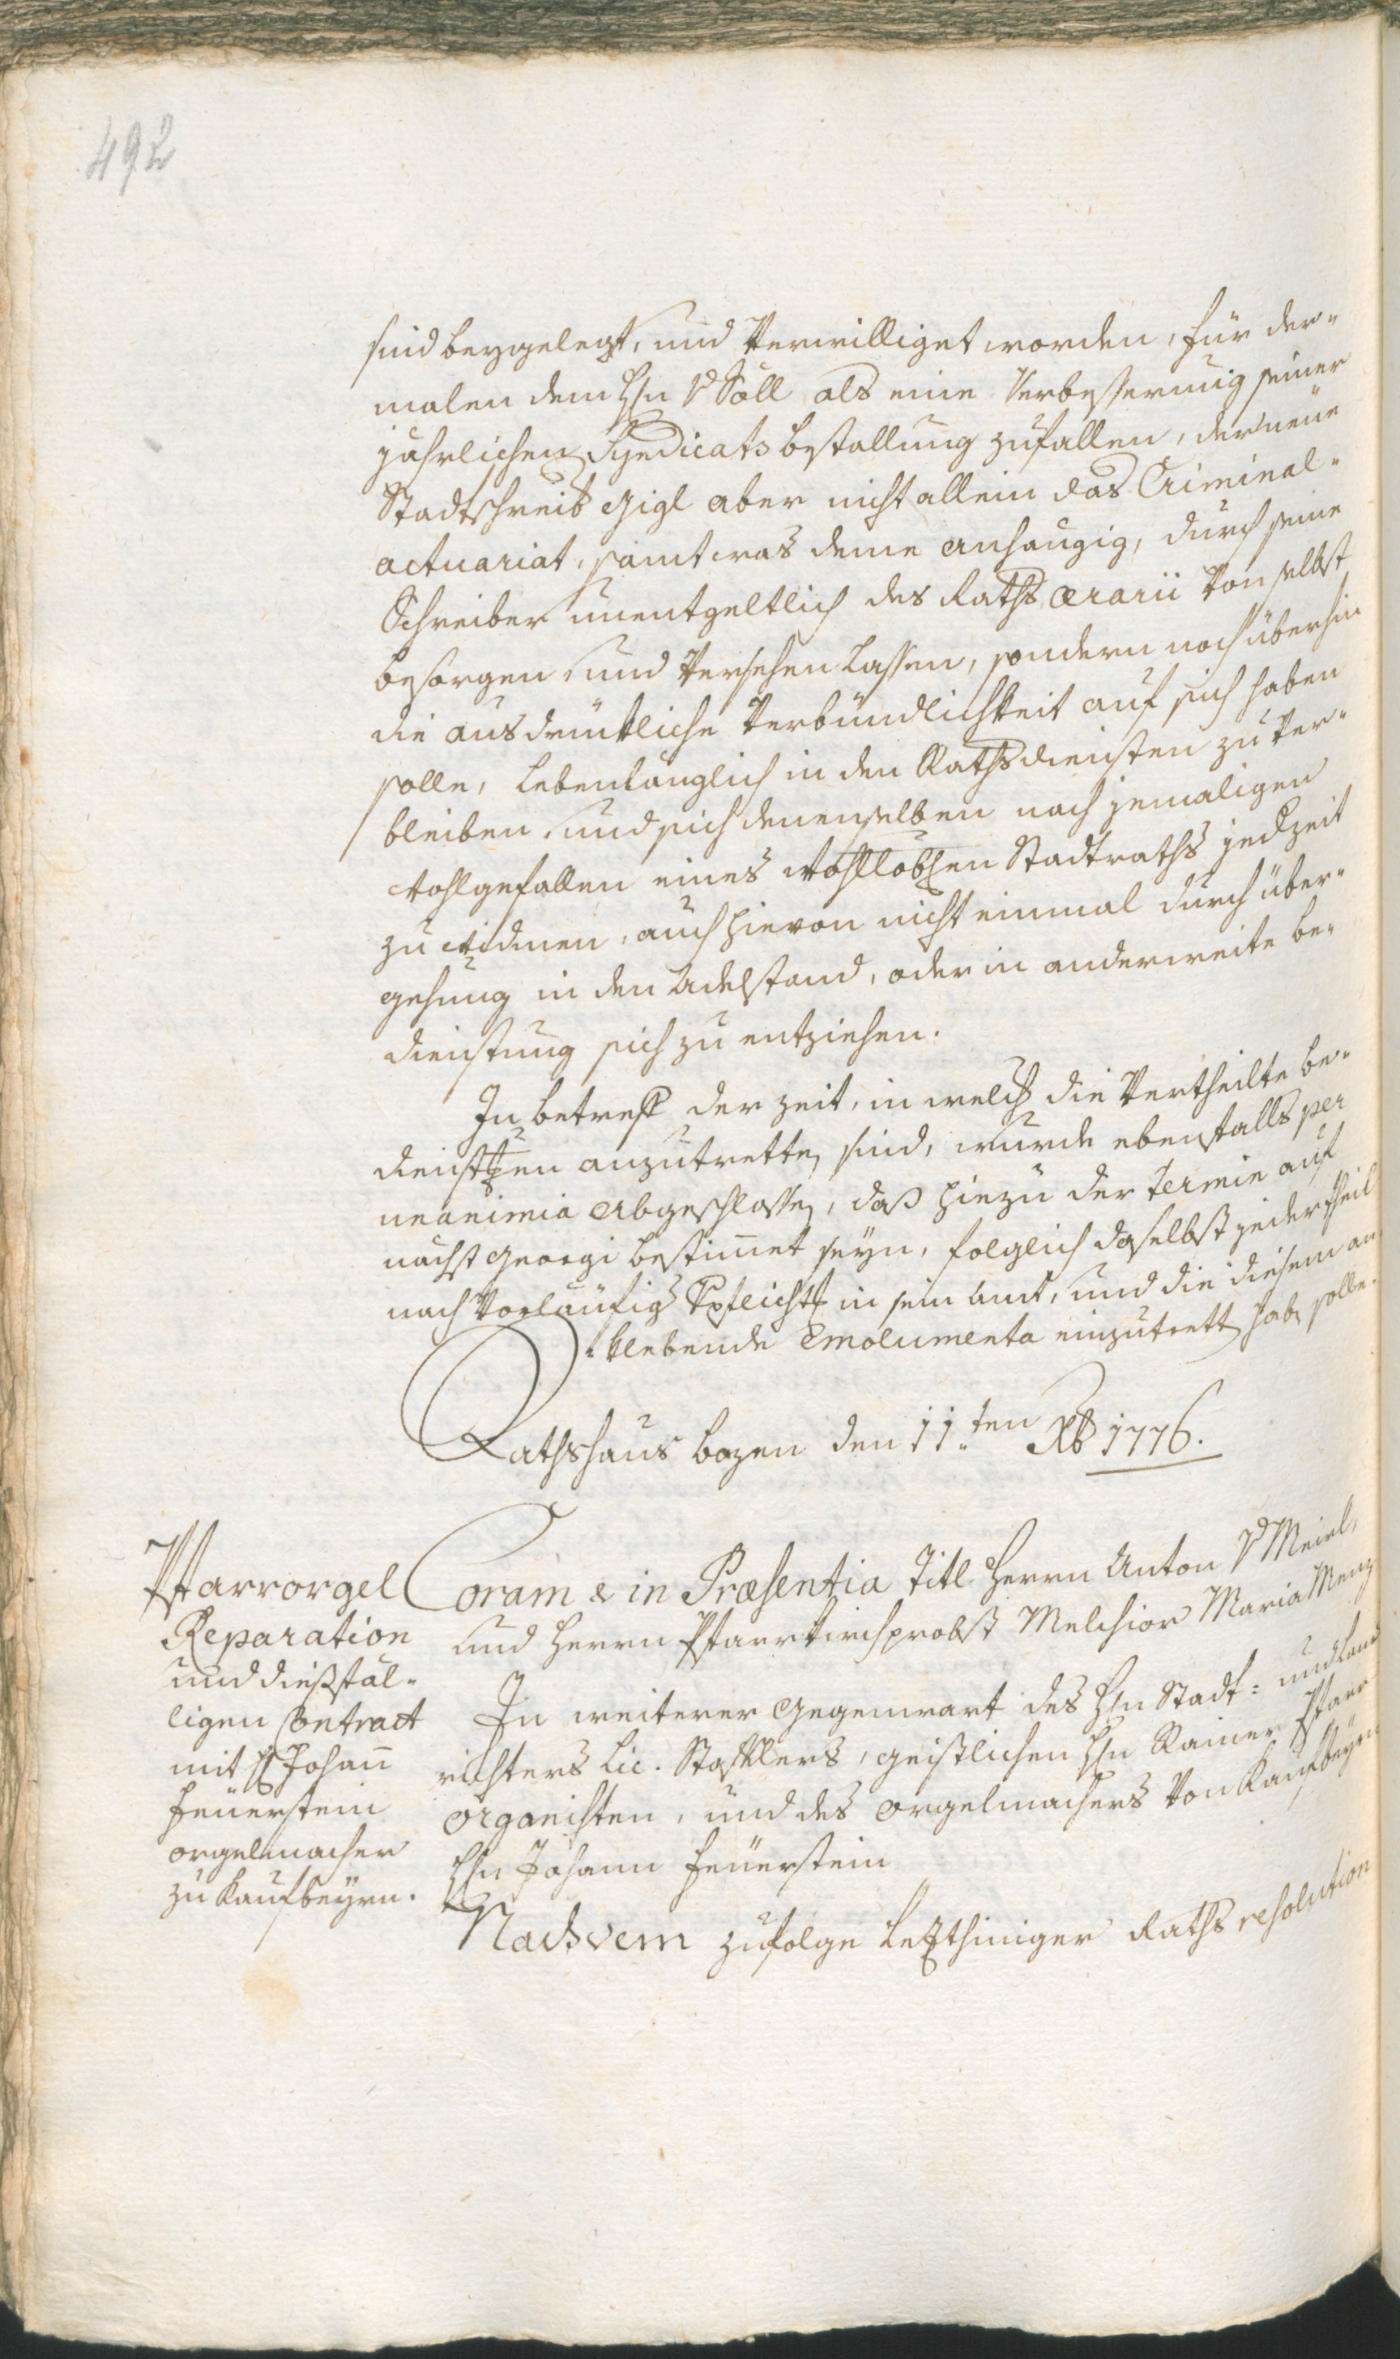 492
sind beygelegt, und verwilliget worden, für der-
malen dem Hn v Söll als eine Verbesserung seiner
jährlichen Syndicats bestallung zufallen, der neüe
Stadtschreib Gigl aber nicht allein das Criminal-
actuariat, samt was deme anhangig, durch seine
Schreiber unentgeltlich des Raths ærarii von selbst
besorgen, und versehen lassen, sondern noch überhin
die ausdrückliche Verbündlichkeit auf sich haben
solle, lebenlänglich in den Rathsdiensten zu ver-
bleiben, und sich denenselben nach jemaligen
Wohlgefallen eines Wohllobhen Stadtraths jedzeit
zu widmen, auch hievon nicht einmal durch über-
gehung in den Adelstand, oder in anderweite be-
dienstung sich zu entziehen.
In betreff der zeit, in welch die vertheilte be-
diensten anzutretten sind, wurde ebenfalls per
unanimia abgeschlossen, daß hiezu der Termin auf
nächst Georgi bestimet seyn, folglich daselbst jeder theil
nach vorläufig Pflicht in sein Amt, und die diesem an
klebende Emolumenta einzutrett hab solle.
Rathshaus Bozen den 11.ten Xb 1776.
Pfarrorgel
Reparation
und dießfäl-
ligen Contract
mit H Johann
Feüerstein
orgelmacher
zu Kaufbeyrn.
Coram & in Præsentia Titl Herrn Anton v Meirl,
und Herrn Pfarrkirchprobst Melchior Maria Menz
In weiterer Gegenwart des Hn Stadt= und Land
richters Lic. Stafflers, geistlichen Hn Rainer Pfarr
organisten, und des orgelmachers von Kaufbeyrn
Hn Johann Feüerstein
Nachdem zufolge letzthiniger Raths resolution